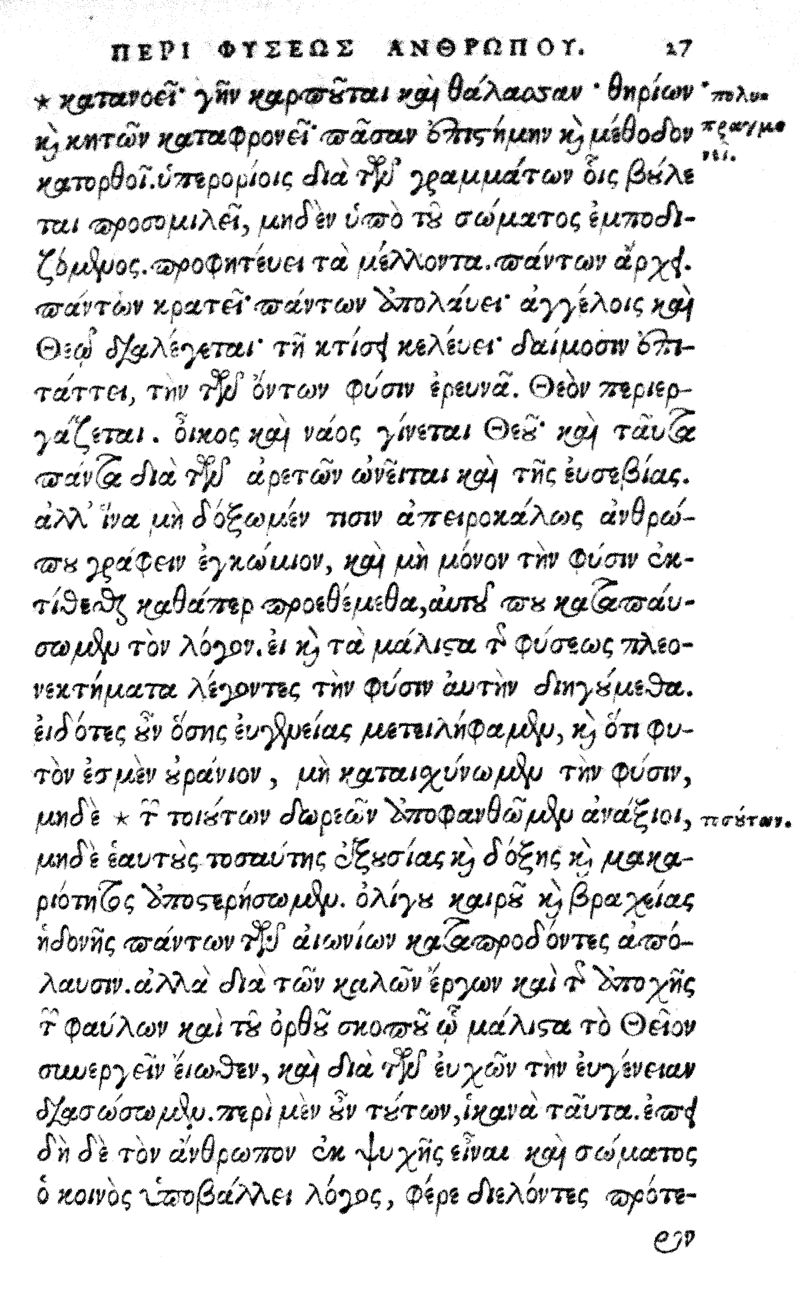 ΠΕΡΙ ΦΥΣΕΩΣ ΑΝΘΡΩΠΟΥ. 27
* κατανοεῖ· γῆν καρποῦται καὶ θάλαοσαν · θηρίων
καὶ κητῶν καταφρονεῖ· πᾶσαν ἐπιστήμην καὶ μέθοδον
κατορθοῖ. ὑπερορίοις διὰ τῶν γραμμάτων οἷς βούλε
ται προσομιλεῖ, μηδὲν ὑπὸ τοῦ σώματος ἐμποδι-
ζόμενος. προφητέυει τὰ μέλλοντα. πάντων ἄρχει.
πάντων κρατεῖ· πάντων ἀπολάυει· ἀγγέλοις καὶ
Θεῷ διαλέγεται· τῇ κτίσει κελέυει· δαίμοσιν ἐπι-
τάττει, τὴν τῶν ὄντων φύσιν ἐρευνᾶ. Θεὸν περιερ-
γάζεται. οἶκος καὶ ναός γίνεται Θεοῦ· καὶ ταῦτα
πάντα διὰ τῶν ἀρετῶν ὠνεῖται καὶ τῆς ἐυσεβίας.
ἀλλ' ἵνα μὴ δόξωμέν τισιν ἀπειροκάλως ἀνθρώ-
που γράφειν ἐγκώμιον, καὶ μὴ μόνον τὴν φύσιν ἐκ-
τίθεσθαι καθάπερ προεθέμεθα, ἀυτοῦ που καταπάυ-
σωμεν τὸν λόγον. ἐι καὶ τὰ μάλιστα τῆς φύσεως πλεο-
νεκτήματα λέγοντες τὴν φύσιν ἀυτὴν διηγούμεθα.
ἐιδότες οὖν ὅσης ἐυγενείας μετειλήφαμεν, καὶ ὅτι φυ-
τὸν ἐσμὲν οὐράνιον, μὴ καταισχύνωμεν τὴν φύσιν,
μηδὲ * τῶν τοιούτων δωρεῶν ἀποφανθῶμεν ἀνάξιοι,
μηδὲ ἑαυτοὺς τοσαύτης ἐξουσίας καὶ δόξης καὶ μακα-
ριότητος ἀποστερήσωμεν. ὀλίγου καιροῦ καὶ βραχείας
ἡδονῆς πάντων τῶν αἰωνίων καταπροδόντες ἀπό-
λαυσιν. ἀλλὰ διὰ τῶν καλῶν ἔργων καὶ τῆς ἀποχῆς
τῶν φαύλων καὶ τοῦ ὀρθοῦ σκοποῦ ᾧ μάλιστα τὸ Θεῖον
συνεργεῖν ἔιωθεν, καὶ διὰ τῶν ἐυχῶν τὴν ἐυγένειαν
διασώσωμεν. περὶ μὲν οὖν τούτων, ἱκανὰ ταῦτα. ἐπει
δὴ δὲ τὸν ἄνθρωπον ἐκ ψυχῆς εἶναι καὶ σώματος
ὁ κοινὸς ὑποβάλλει λόγος, φέρε διελόντες πρότε-
ρον
πολυ-
πραγμο
νεῖ.
τοσούτων.